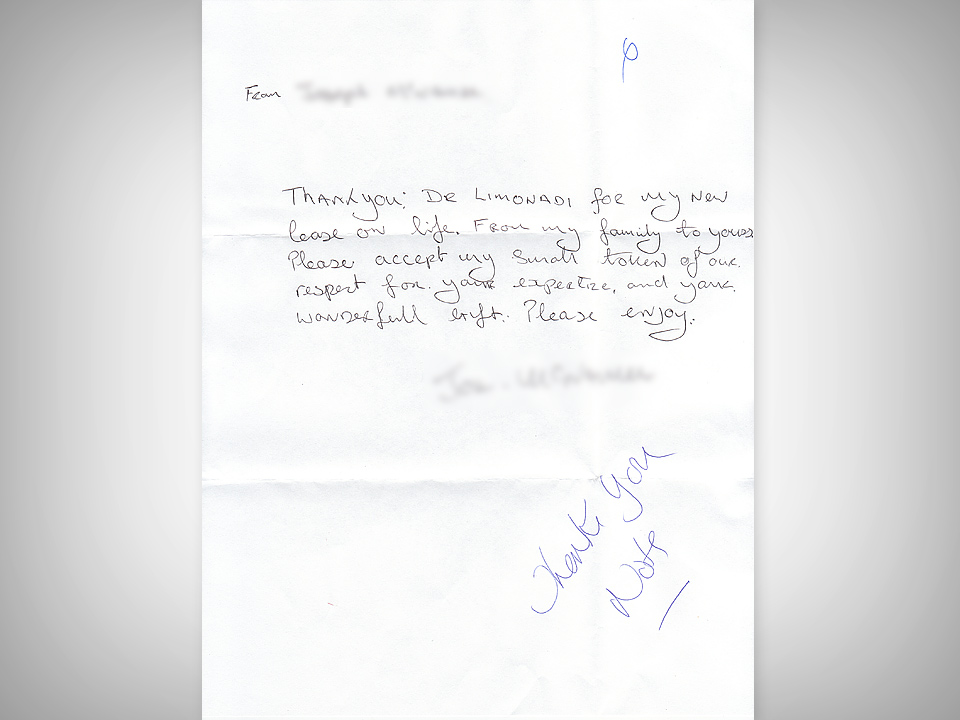 From
Thankyou: DR LIMONADI for my new
lease on life. From my family to yours
Please accept my small token of our.
respect for. your expertize, and your.
wonderfull gift. Please enjoy.
Thank You
Note